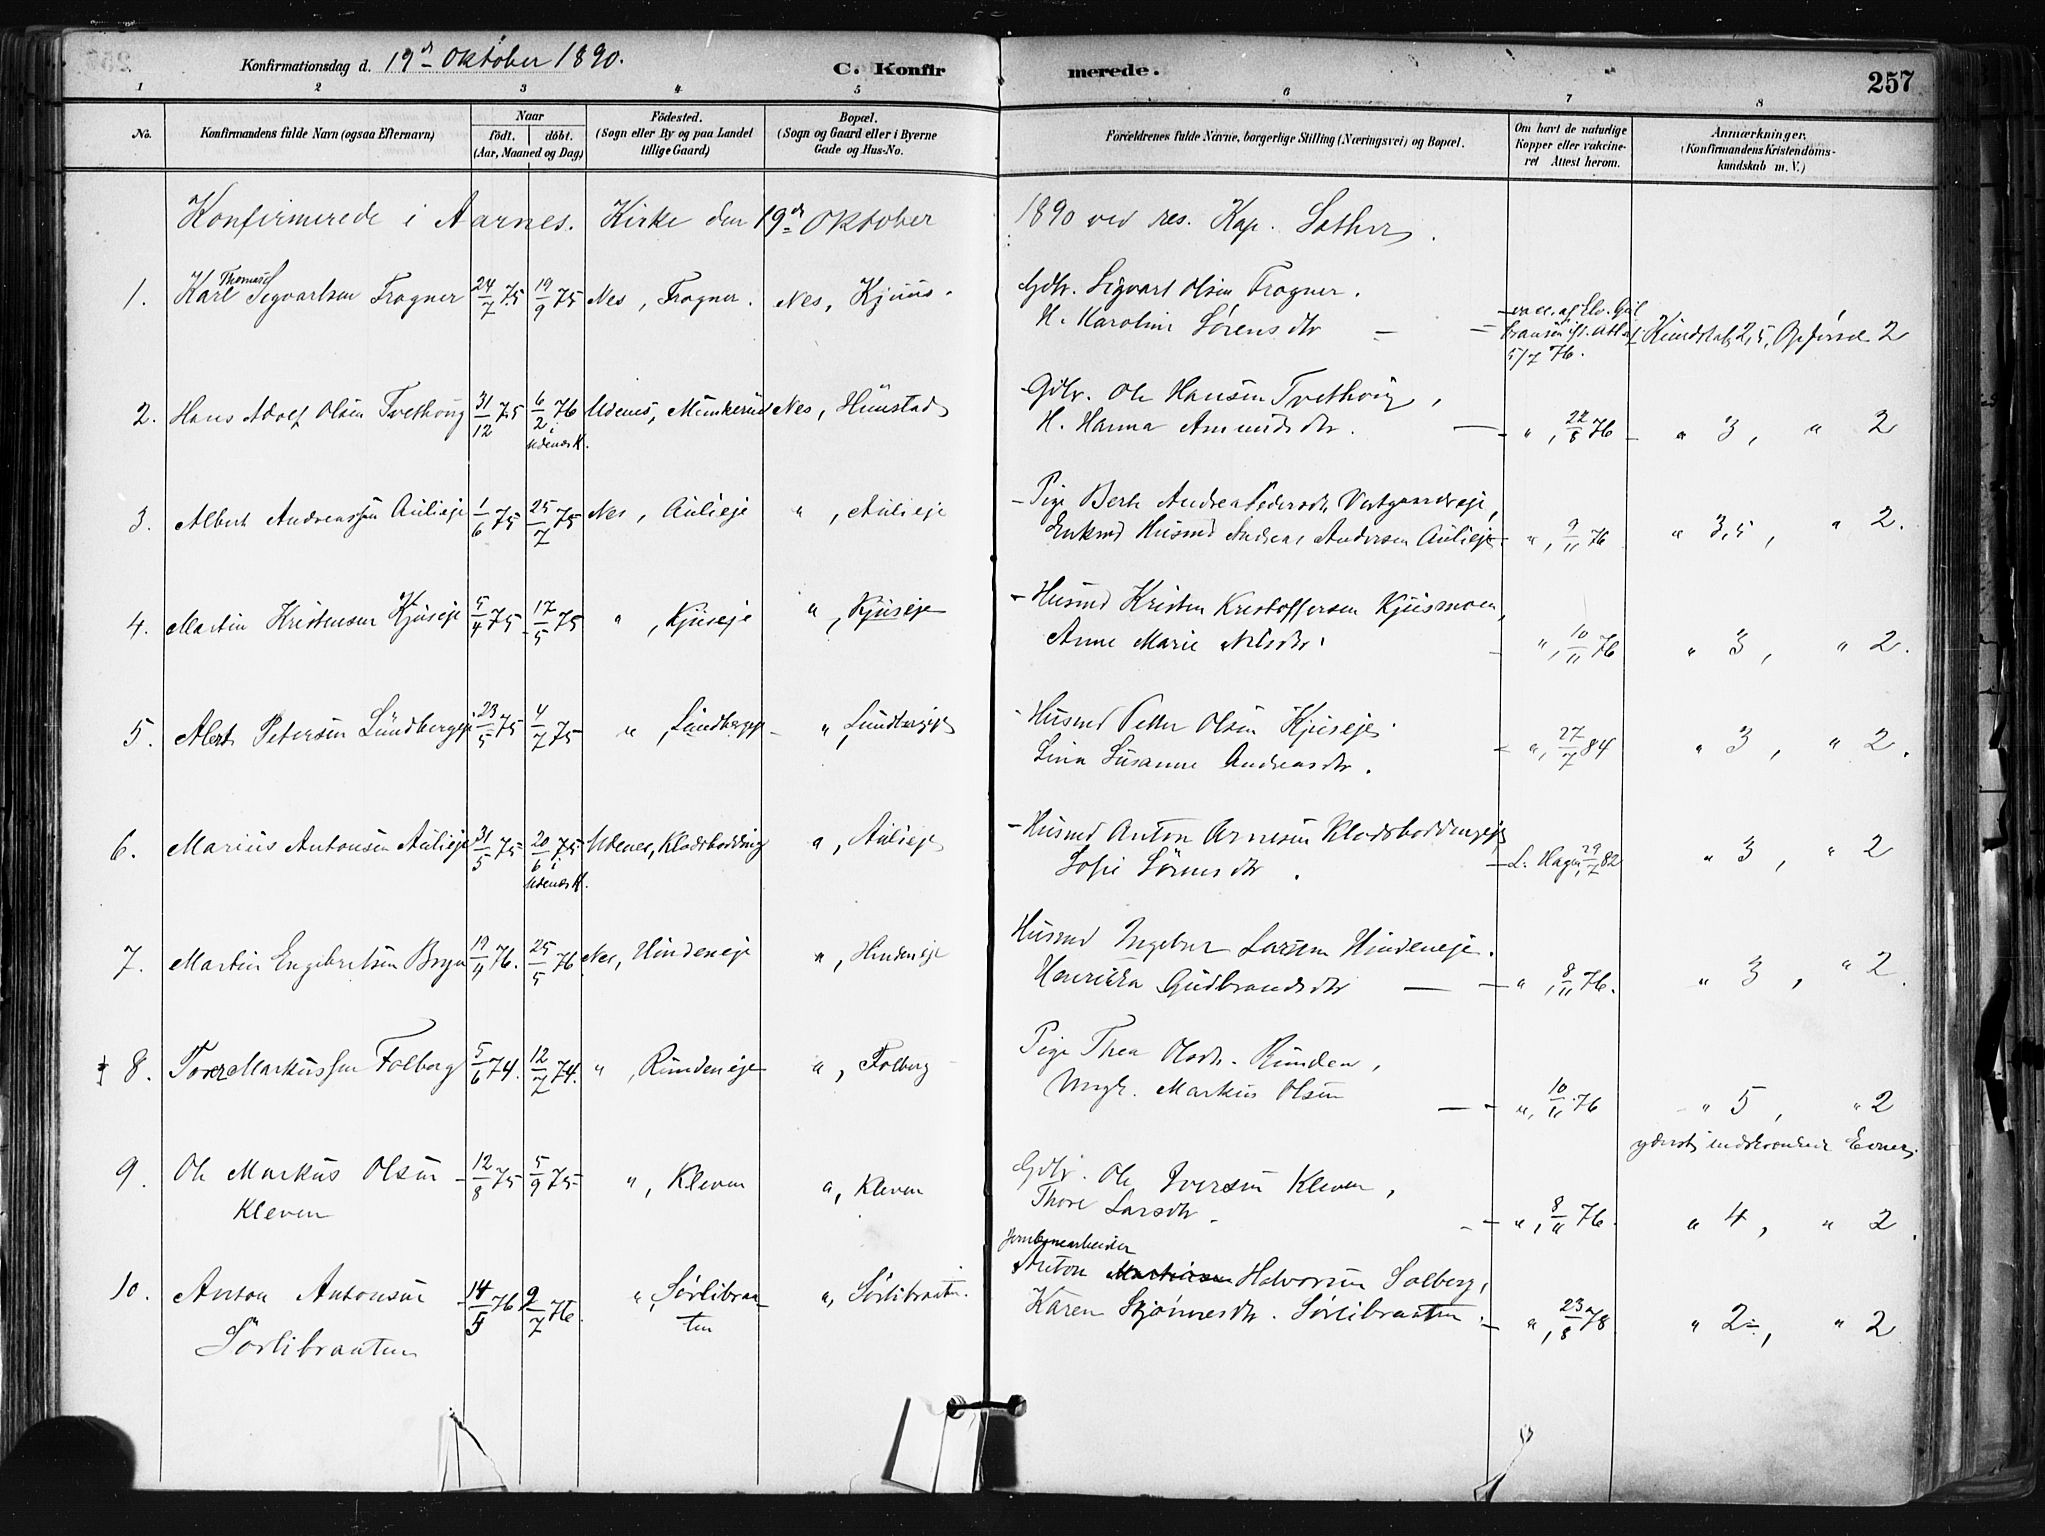 Konfirmationsdag d. 19de Oktober 1890.
C. Konfir merede.
257
1 2 3 4 5 6 7 8
No.
Konfirmandens fulde Navn (ogsaa Efternavn)
Naar
födt. döbt.
(Aar, Maaned og Dag)
Födested.
(Sogn eller By og paa Landet
tillige Gaard)
Bopæl.
(Sogn og Gaard eller i Byerne
Gade og Hus-No.
Forældrenes fulde Navne, borgerlige Stilling (Næringsvei) og Bopæl.
Om havt de naturlige
Kopper eller vakcine-
ret Attest herom.
Anmærkninger.
(Konfirmandens Kristendoms-
kundskab m. V.)
Konfirmerede i Aarnes. Kirke den 19de Oktober 1890 ved res. Kap.
Thomas
1. Karl Sigvartsen Frogner 24/7 75 19/9 75 Nes, Frogner. Nes, Kjuus.
Gdbr. Sigvart Olsen Frogner.
H. Karoline Sørensdtr
5/7 76. Kundskab 2,5, Opførsel 2
2. Hans Adolf Olsen Tvethoug 31/12 75 6/2 76 Udenes, Munkerud Nes, Hunstad
i
Udenæs K.
Gdbr. Ole Hansen Tvethoug,
H. Hanna Amundsdtr. — " , 22/8 76 " 3, " 2
3. Albert Andreassen Aulieje 1/6 75 25/7 75 Nes, Aulieje " , Aulieje
Pige Berthe Andrea Pedersdtr. Vestgaardseje,
Enkmd Husmd Andreas Andersen Aulieje " , 9/11 76 " 3,5, " 2.
4. Martin Kristensen Kjuseje 5/4 75 17/5 75 " , Kjuseje " , Kjuseje
Husmd Kristen Kristoffersen Kjusmoen,
Anne Marie Nilsdtr. " , 10/11 76 " 3, " 2.
5. Albert Petersen Lundbergeje 23/5 75 4/7 75 " , Lundbergeje " , Lundbergeje
Husmd Petter Olsen Kjuseje.
Lina Susanne Andreasdtr. " , 27/7 84 " 3, " 2.
6. Marius Antonsen Aulieje 31/5 75 20/6 75 Udenes, Klodsbødding " , Aulieje
i
Udenæs K.
Husmd Anton Arnesen Klodsboddingeje
Sofie Sørensdtr. L. Hagen, 29/7 82 " 3, " 2
7. Martin Engebretsen Bryn 19/4 76. 25/5 76 Nes, Hindeneje " , Hindeneje
Husmd Ingebret Larsen Hindeneje.
Henrikka Gudbrandsdtr — " , 8/11 76. " 3, " 2.
8. Tover Markussen Folberg 5/6 74. 12/7 74. " , Rundeneje " , Folberg
Pige Thea Olsdtr. Runden,
Ungk. Markus Olsen — " , 10/11 76 " 5, " 2
yderst indskrænkede Evner.
9. Ole Markus Olsen 12/8 75 5/9 75 " , Kleven " , Kleven
Kleven
Gdbr. Ole Iversen Kleven,
Thore Larsdtr. " , 8/11 76. " 4, " 2.
Jernbanearbeider
10. Anton Antonsen 14/5 76 9/7 76. " , Sørlibraa- " , Sørlibraaten.
ten
Sørlibraaten
Anton Halvorsen Solberg,
Karen Skjønnesdtr. Sørlibraaten. " , 23/8 78. " 2, " 2